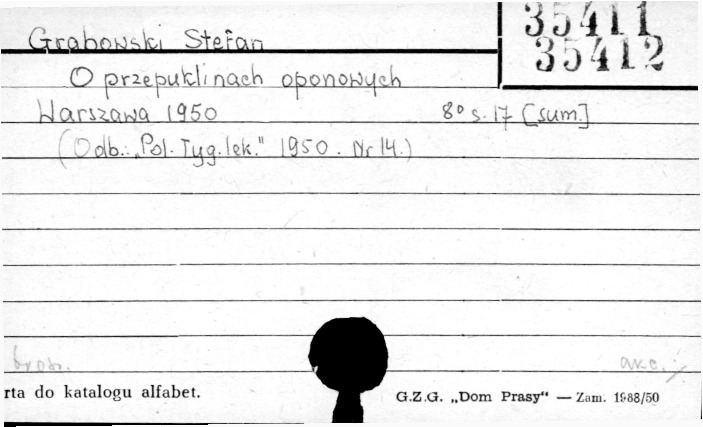 35411
35412
Grabowski Stefan
O przepuklinach oponowych
Warszawa 1950 8° s. 17 [sum.]
(Odb.: „Pol. Tyg. lek." 1950. Nr 14.)
brosz. akc.
rta do katalogu alfabet. G.Z.G. „Dom Prasy" — Zam. 1988/50